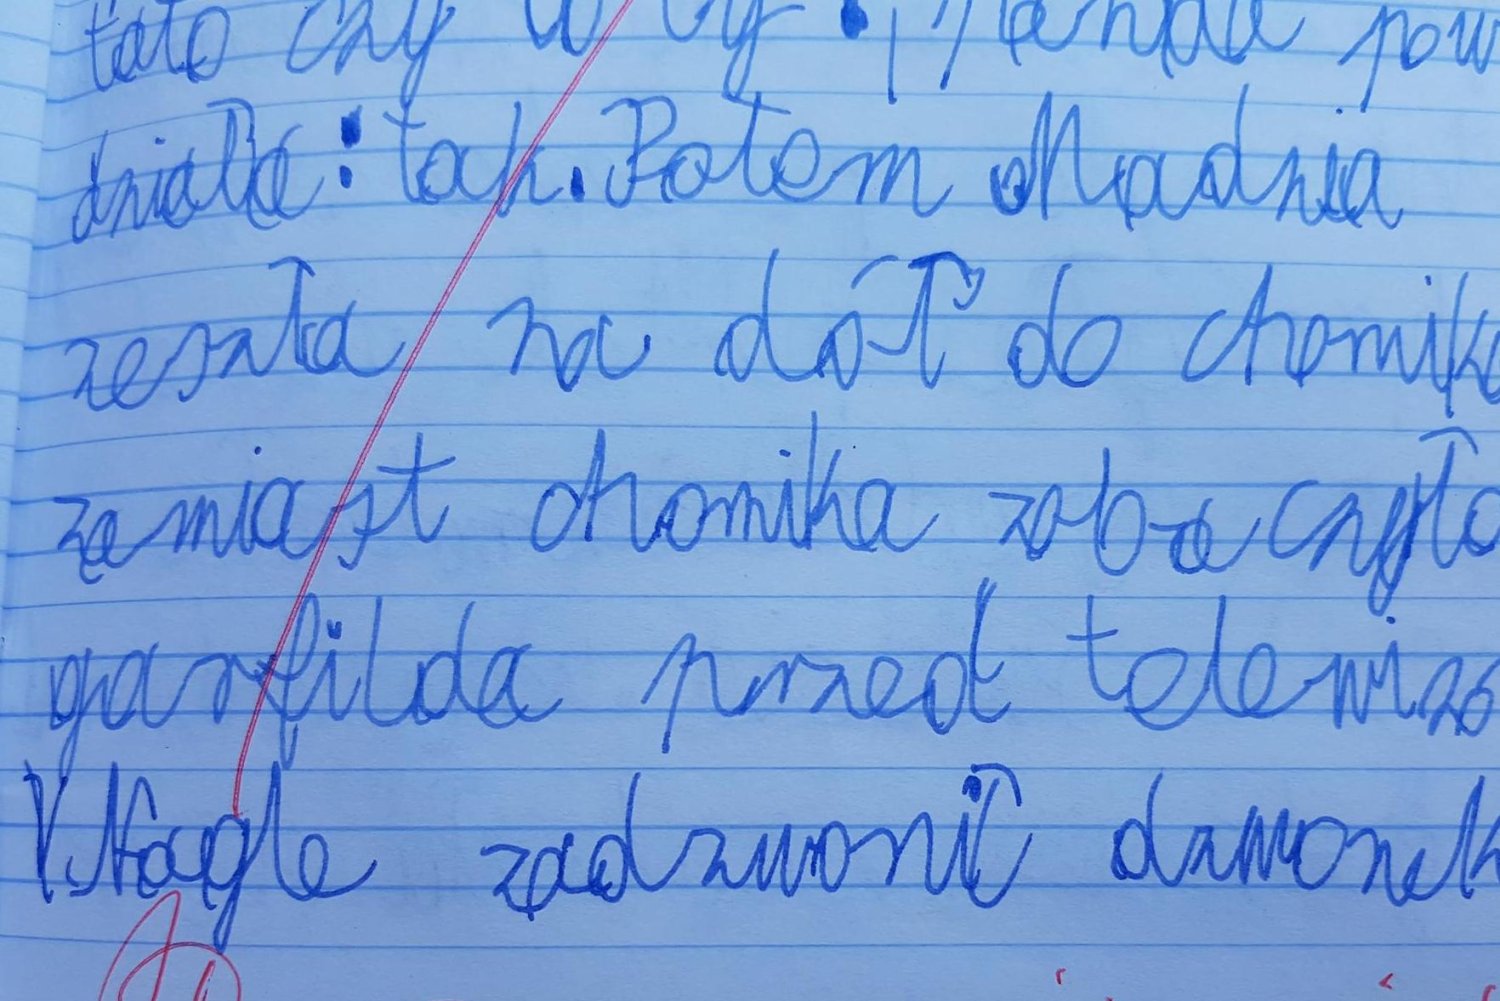 tato czy to ty : , , Tak pow
działa : tak. Potem Madzia
zeszła na dół do chomika
zamiast chomika zobaczyła
garfilda przed telewizo
r. Nagle zadzwonił dzwonek